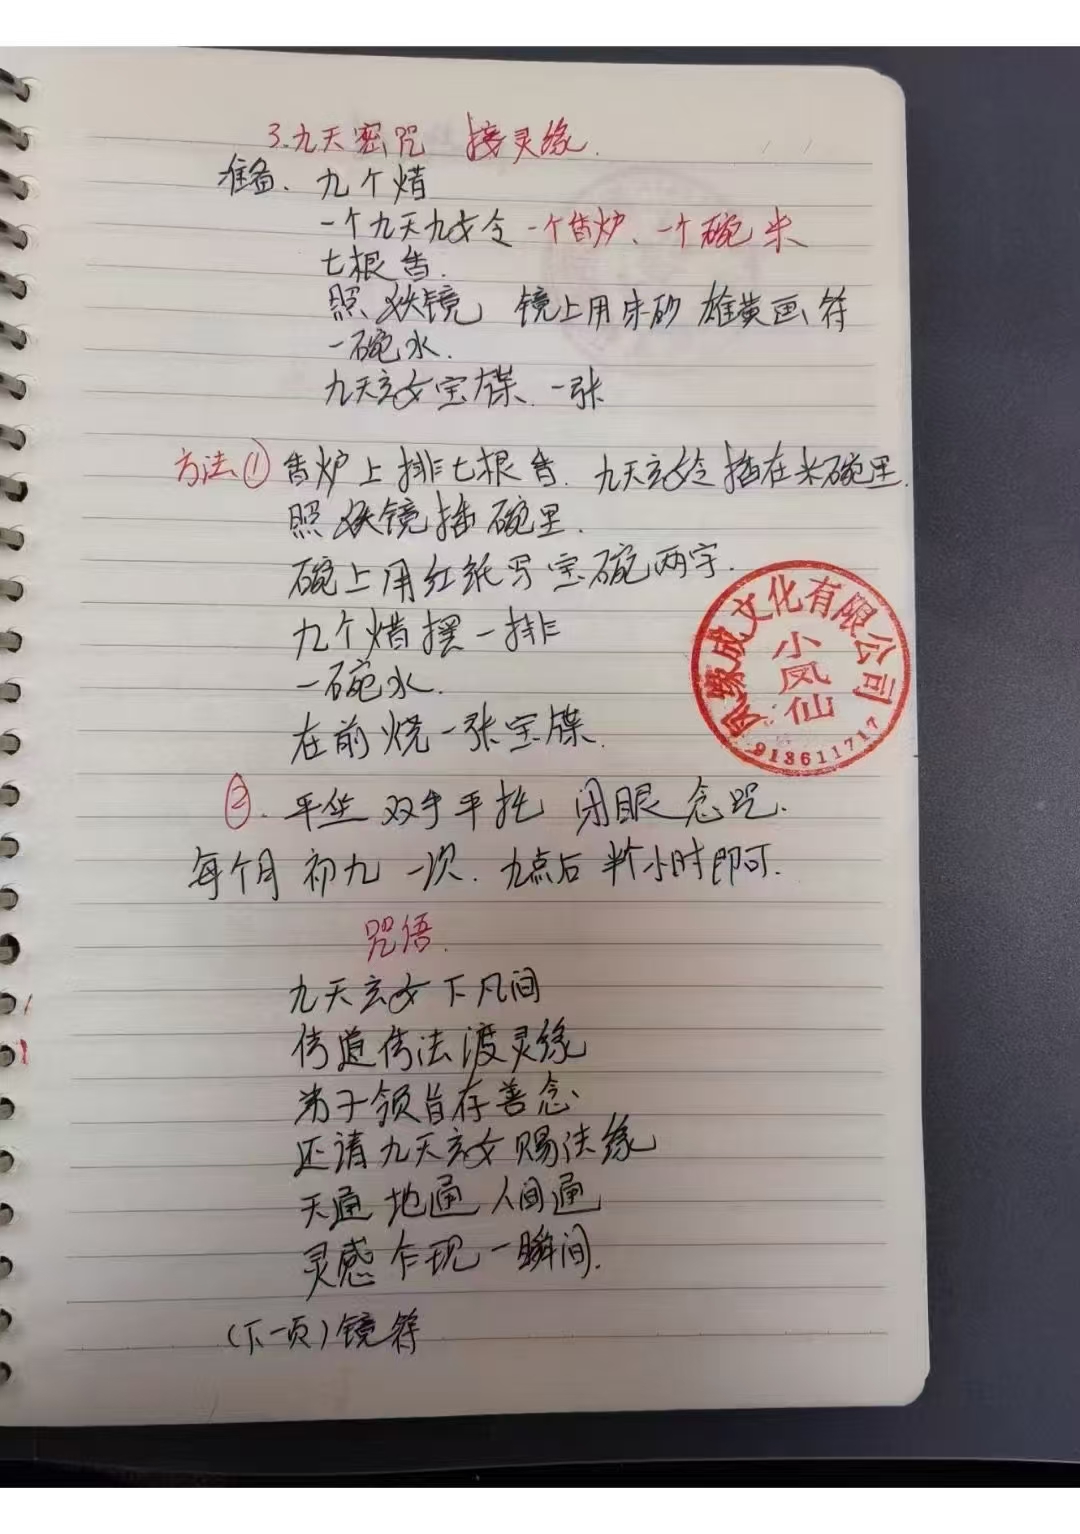 3.九天密咒 接灵缘.
准备、九个烛
一个九天九女令 一个香炉、一个碗 米
七根香.
照妖镜 镜上用朱砂 雄黄画符
一碗水.
九天玄女宝牒、一张
方法① 香炉上排七根香、九天玄女令插在米碗里.
照妖镜插碗里.
碗上用红纸写宝碗两字.
九个烛摆一排
一碗水.
在前烧一张宝牒.
②.平坐 双手平托 闭眼念咒.
每个月初九一次.九点后半个小时即可.
咒语.
九天玄女下凡间
传道传法渡灵缘
弟子领旨存善念、
还请九天玄女赐法缘
天通 地通 人间通
灵感乍现一瞬间.
(下一页)镜符
缘成文化有限公司
小凤仙
913611717